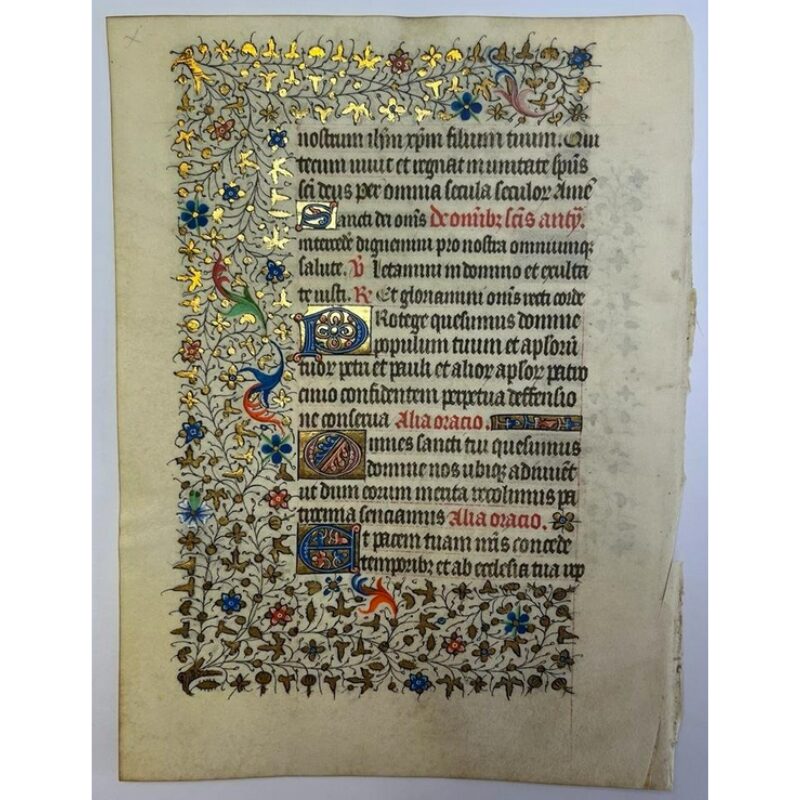 nostrum ihm xpm filium tuum. Qui
tecum vivit et regnat in unitate spus
sci deus per omnia secula seculor Ame
Sancti dei oms De omibz scis anty.
intercede dignemini pro nostra omniumqz
salute. V Letamini in domino et exulta
te iusti. R Et gloriamini oms recti corde
Protege quesumus domine
populum tuum et apsorum
tuor petri et pauli et alior apsor patro
cinio confidentem perpetua deffensio
ne conserva Alia oracio.
Omnes sancti tui quesumus
domine nos ubiqz adiuvet
ut dum eorum merita recolimus pa
trocinia senciamus Alia oracio.
Et pacem tuam nris concede
temporibz et ab ecclesia tua